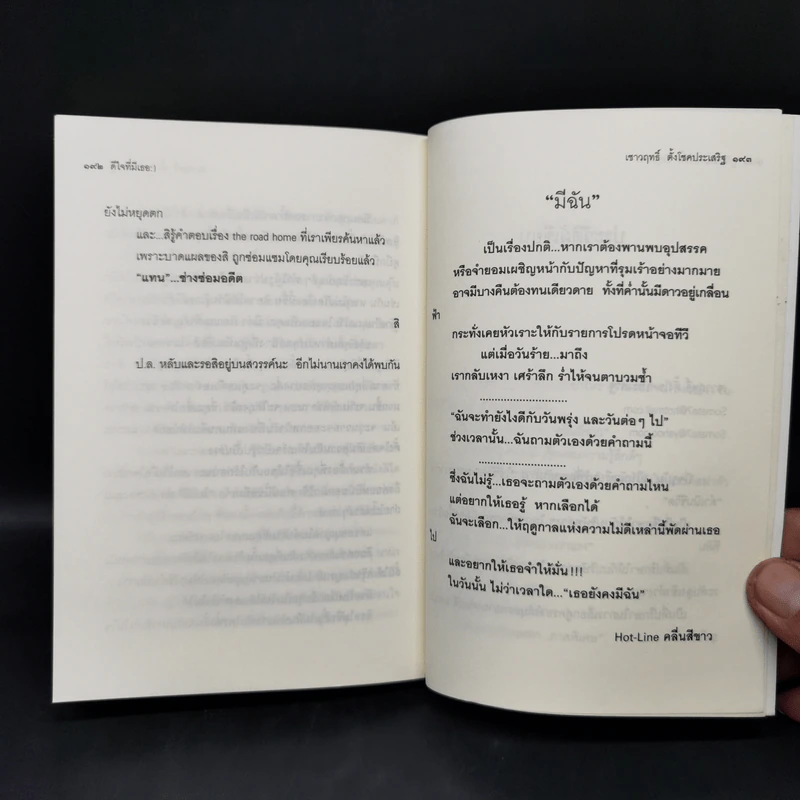 ๑๙๒ ดีใจที่มีเธอ:)
ยังไม่หยุดตก
และ...สิรู้คำตอบเรื่อง the road home ที่เราเพียรค้นหาแล้ว
เพราะบาดแผลของสิ ถูกซ่อมแซมโดยคุณเรียบร้อยแล้ว
"แทน"...ช่างซ่อมอดีต
สิ
ป.ล. หลับและรอสิอยู่บนสวรรค์นะ อีกไม่นานเราคงได้พบกัน
เชาวฤทธิ์ ตั้งโชคประเสริฐ ๑๙๓
"มีฉัน"
เป็นเรื่องปกติ...หากเราต้องพานพบอุปสรรค
หรือจำยอมเผชิญหน้ากับปัญหาที่รุมเร้าอย่างมากมาย
อาจมีบางคืนต้องทนเดียวดาย ทั้งที่ค่ำนั้นมีดาวอยู่เกลื่อน
ฟ้า
กระทั่งเคยหัวเราะให้กับรายการโปรดหน้าจอทีวี
แต่เมื่อวันร้าย...มาถึง
เรากลับเหงา เศร้าลึก ร่ำไห้จนตาบวมช้ำ
............................
"ฉันจะทำยังไงดีกับวันพรุ่ง และวันต่อๆ ไป"
ช่วงเวลานั้น...ฉันถามตัวเองด้วยคำถามนี้
............................
ซึ่งฉันไม่รู้...เธอจะถามตัวเองด้วยคำถามไหน
แต่อยากให้เธอรู้ หากเลือกได้
ฉันจะเลือก...ให้ฤดูกาลแห่งความไม่ดีเหล่านี้พัดผ่านเธอ
ไป
และอยากให้เธอจำให้มั่น!!!
ในวันนั้น ไม่ว่าเวลาใด..."เธอยังคงมีฉัน"
Hot-Line คลื่นสีขาว